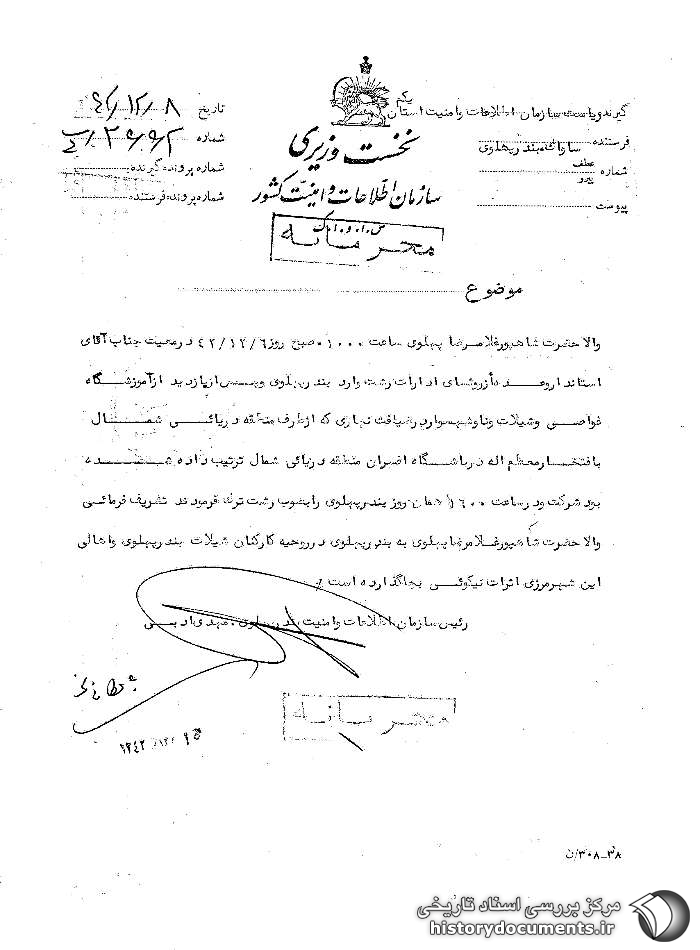 گیرنده ریاست سازمان اطلاعات و امنیت استان یکم
فرستنده ساواک بندرپهلوی
شماره عطف پیرو
پیوست
نخست وزیری
سازمان اطلاعات و امنیت کشور
س.ا.و.ا.ک
محرمانه
تاریخ ۴۲/۱۲/۸
شماره
شماره پرونده گیرنده
شماره پرونده فرستنده
موضوع
والاحضرت شاهپور غلامرضا پهلوی ساعت ۱۰۰۰ صبح روز ۴۲/۱۲/۶ در معیت جناب آقای
استاندار و عده‌ای از روسای ادارات رشت وارد بندرپهلوی و پس از بازدید از آموزشگاه
غواصی و شیلات و ناو شهسوار در ضیافت نهاری که از طرف منطقه دریائی شمال
بافتخار معظم اله در باشگاه افسران منطقه دریائی شمال ترتیب داده شده
بود شرکت و در ساعت ۱۶۰۰ همان روز بندرپهلوی را بصوب رشت ترک فرمودند تشریف فرمائی
والاحضرت شاهپور غلامرضا پهلوی به بندرپهلوی در روحیه کارکنان شیلات بندرپهلوی و اهالی
این شهر مرزی اثرات نیکوئی بجا گذارده است
رئیس سازمان اطلاعات و امنیت بندرپهلوی . مهدی ادیبی
محرمانه
۳۰۸-۳۸/ن
مرکز بررسی اسناد تاریخی
historydocuments.ir